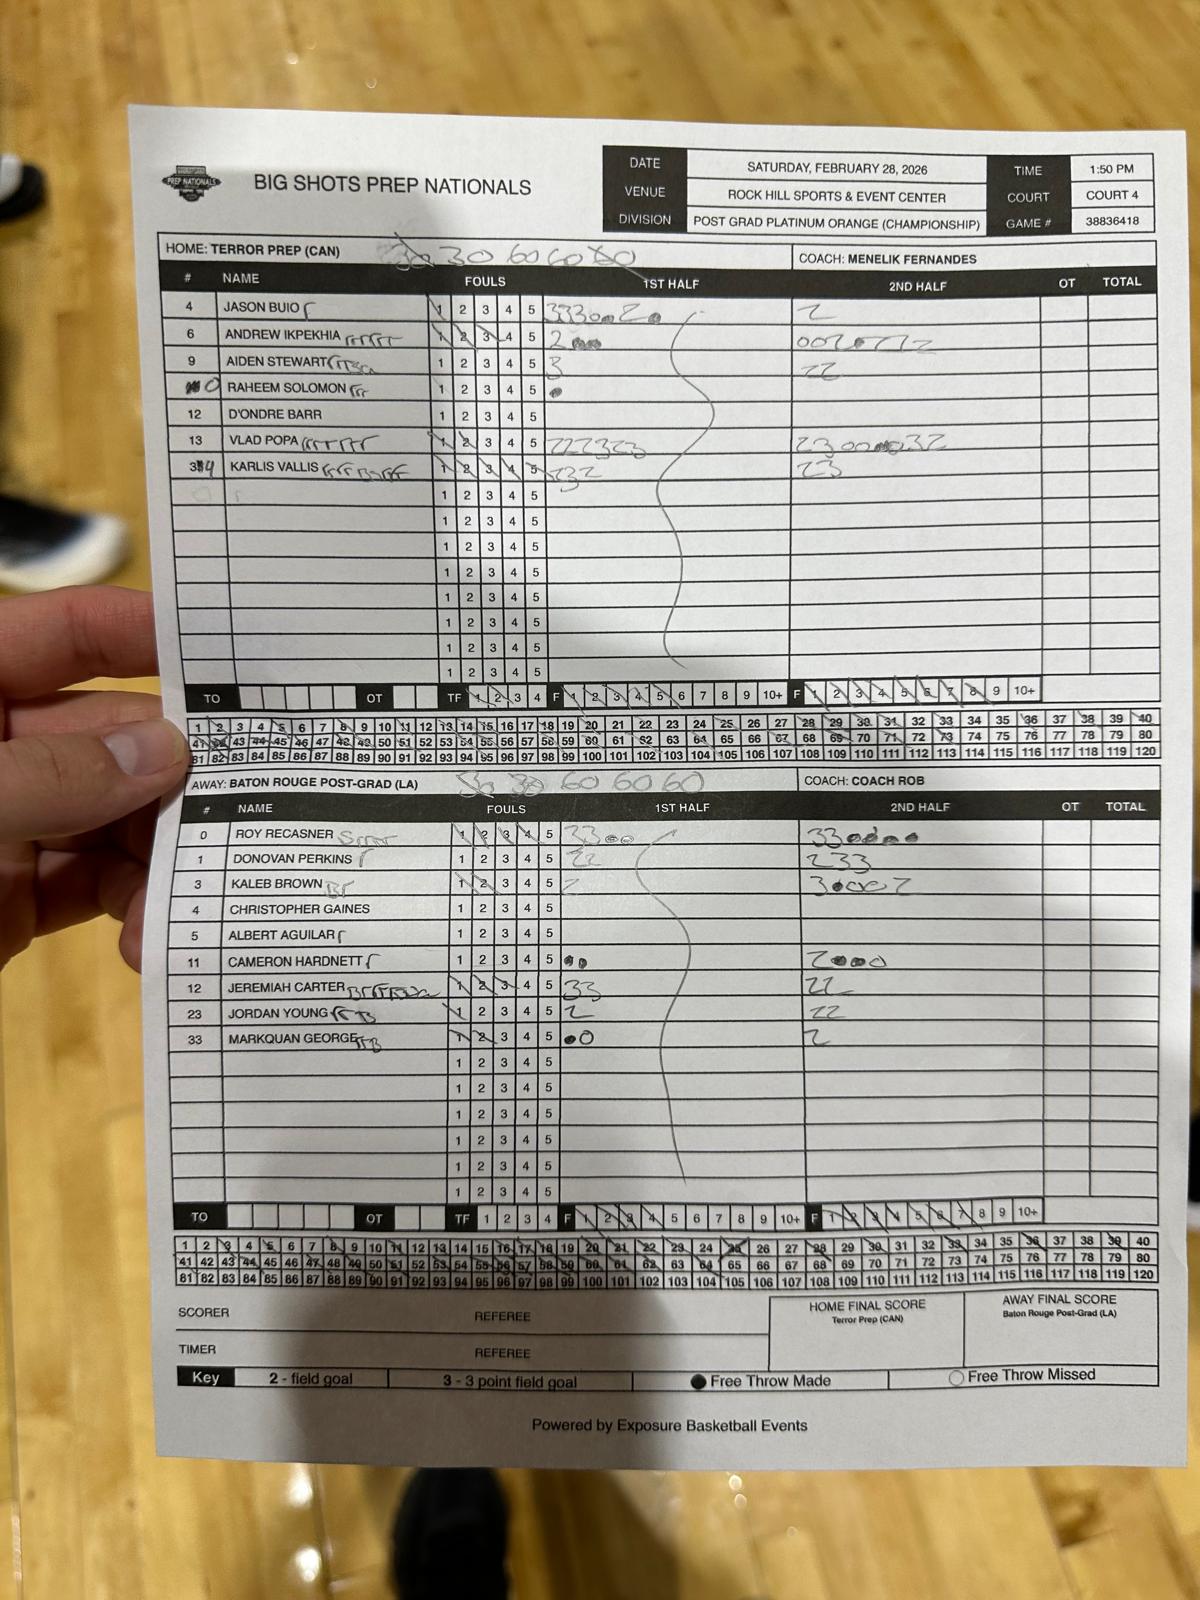 PREP NATIONALS
BIG SHOTS PREP NATIONALS
DATE SATURDAY, FEBRUARY 28, 2026 TIME 1:50 PM
VENUE ROCK HILL SPORTS & EVENT CENTER COURT COURT 4
DIVISION POST GRAD PLATINUM ORANGE (CHAMPIONSHIP) GAME # 38836418
HOME: TERROR PREP (CAN) 30 30 60 60 60 COACH: MENELIK FERNANDES
# NAME FOULS 1ST HALF 2ND HALF OT TOTAL
4 JASON BUIO 1 2 3 4 5 2
6 ANDREW IKPEKHIA 1 2 3 4 5
9 AIDEN STEWART 1 2 3 4 5 3 22
0 RAHEEM SOLOMON 1 2 3 4 5 ●
12 D'ONDRE BARR 1 2 3 4 5
13 VLAD POPA 1 2 3 4 5 222323
34 KARLIS VALLIS 1 2 3 4 5 232 23
1 2 3 4 5
1 2 3 4 5
1 2 3 4 5
1 2 3 4 5
1 2 3 4 5
1 2 3 4 5
1 2 3 4 5
1 2 3 4 5
TO OT TF 1 2 3 4 F 1 2 3 4 5 6 7 8 9 10+ F 1 2 3 4 5 6 7 8 9 10+
1 2 3 4 5 6 7 8 9 10 11 12 13 14 15 16 17 18 19 20 21 22 23 24 25 26 27 28 29 30 31 32 33 34 35 36 37 38 39 40
41 42 43 44 45 46 47 48 49 50 51 52 53 54 55 56 57 58 59 60 61 62 63 64 65 66 67 68 69 70 71 72 73 74 75 76 77 78 79 80
81 82 83 84 85 86 87 88 89 90 91 92 93 94 95 96 97 98 99 100 101 102 103 104 105 106 107 108 109 110 111 112 113 114 115 116 117 118 119 120
AWAY: BATON ROUGE POST-GRAD (LA) 30 30 60 60 60 COACH: COACH ROB
# NAME FOULS 1ST HALF 2ND HALF OT TOTAL
0 ROY RECASNER 1 2 3 4 5 33○○ 33●●●●
1 DONOVAN PERKINS 1 2 3 4 5 22 233
3 KALEB BROWN 1 2 3 4 5 2 3●○○○2
4 CHRISTOPHER GAINES 1 2 3 4 5
5 ALBERT AGUILAR 1 2 3 4 5
11 CAMERON HARDNETT 1 2 3 4 5 ●● 2●●●○
12 JEREMIAH CARTER 1 2 3 4 5 33 22
23 JORDAN YOUNG 1 2 3 4 5 2 22
33 MARKQUAN GEORGE 1 2 3 4 5 ●○ 2
1 2 3 4 5
1 2 3 4 5
1 2 3 4 5
1 2 3 4 5
1 2 3 4 5
1 2 3 4 5
TO OT TF 1 2 3 4 F 1 2 3 4 5 6 7 8 9 10+ F 1 2 3 4 5 6 7 8 9 10+
1 2 3 4 5 6 7 8 9 10 11 12 13 14 15 16 17 18 19 20 21 22 23 24 25 26 27 28 29 30 31 32 33 34 35 36 37 38 39 40
41 42 43 44 45 46 47 48 49 50 51 52 53 54 55 56 57 58 59 60 61 62 63 64 65 66 67 68 69 70 71 72 73 74 75 76 77 78 79 80
81 82 83 84 85 86 87 88 89 90 91 92 93 94 95 96 97 98 99 100 101 102 103 104 105 106 107 108 109 110 111 112 113 114 115 116 117 118 119 120
SCORER REFEREE HOME FINAL SCORE AWAY FINAL SCORE
Terror Prep (CAN) Baton Rouge Post-Grad (LA)
TIMER REFEREE
Key 2 - field goal 3 - 3 point field goal ● Free Throw Made ○ Free Throw Missed
Powered by Exposure Basketball Events